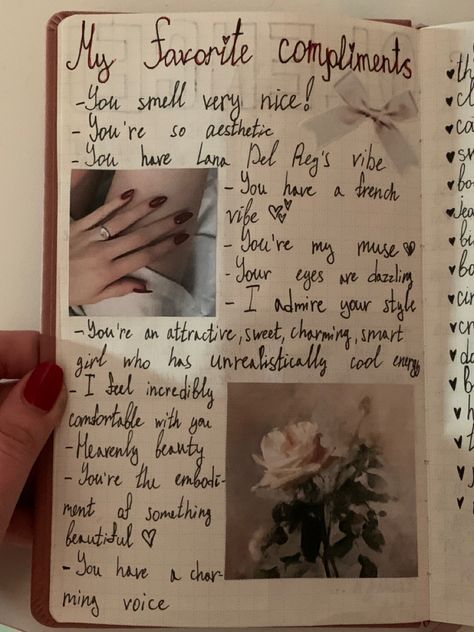 My favorite compliments
-You smell very nice!
- You're so aesthetic
- You have Lana Del Rey's vibe
- You have a french
vibe
- You're my muse
- Your eyes are dazzling
- I admire your style
-You're an attractive, sweet, charming, smart
girl who has unrealistically cool energy
- I feel incredibly
comfortable with you
- Heavenly beauty
- You're the embodi-
ment of something
beautiful
- You have a char-
ming voice